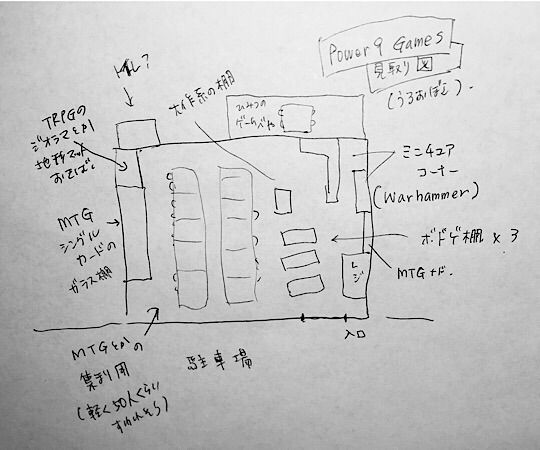 Power 9 Games
見取り図
(うろおぼえ).
トイレ?
大作系の棚
ひみつの
ゲームべや
TRPGの
ジオラマとか
地形マット
おそばに
ミニチュア
コーナー
(Warhammer)
MTG
シングル
カードの
ガラス棚
ボドゲ棚×3
MTGナド.
レジ
入口
MTGとかの
集まり用
(軽く50人くらい
すわれそう)
駐車場